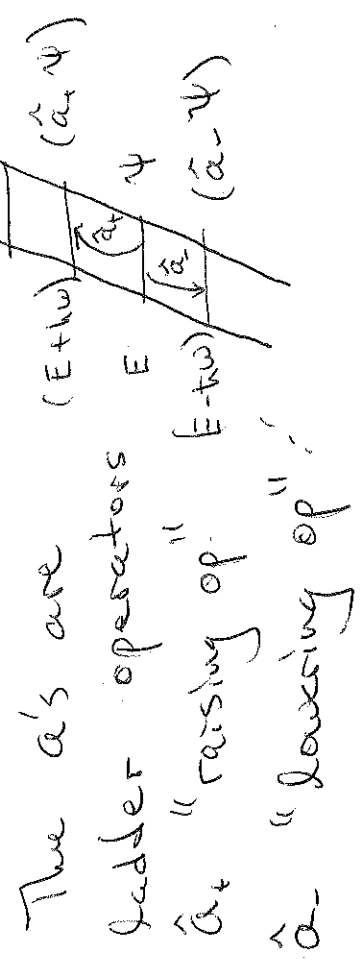 The a's are
ladder operators
â₊ "raising op."
â₋ "lowering op"
(E+ħω) (â₊ ψ)
â₊
E ψ
â₋
(E-ħω) (â₋ ψ)